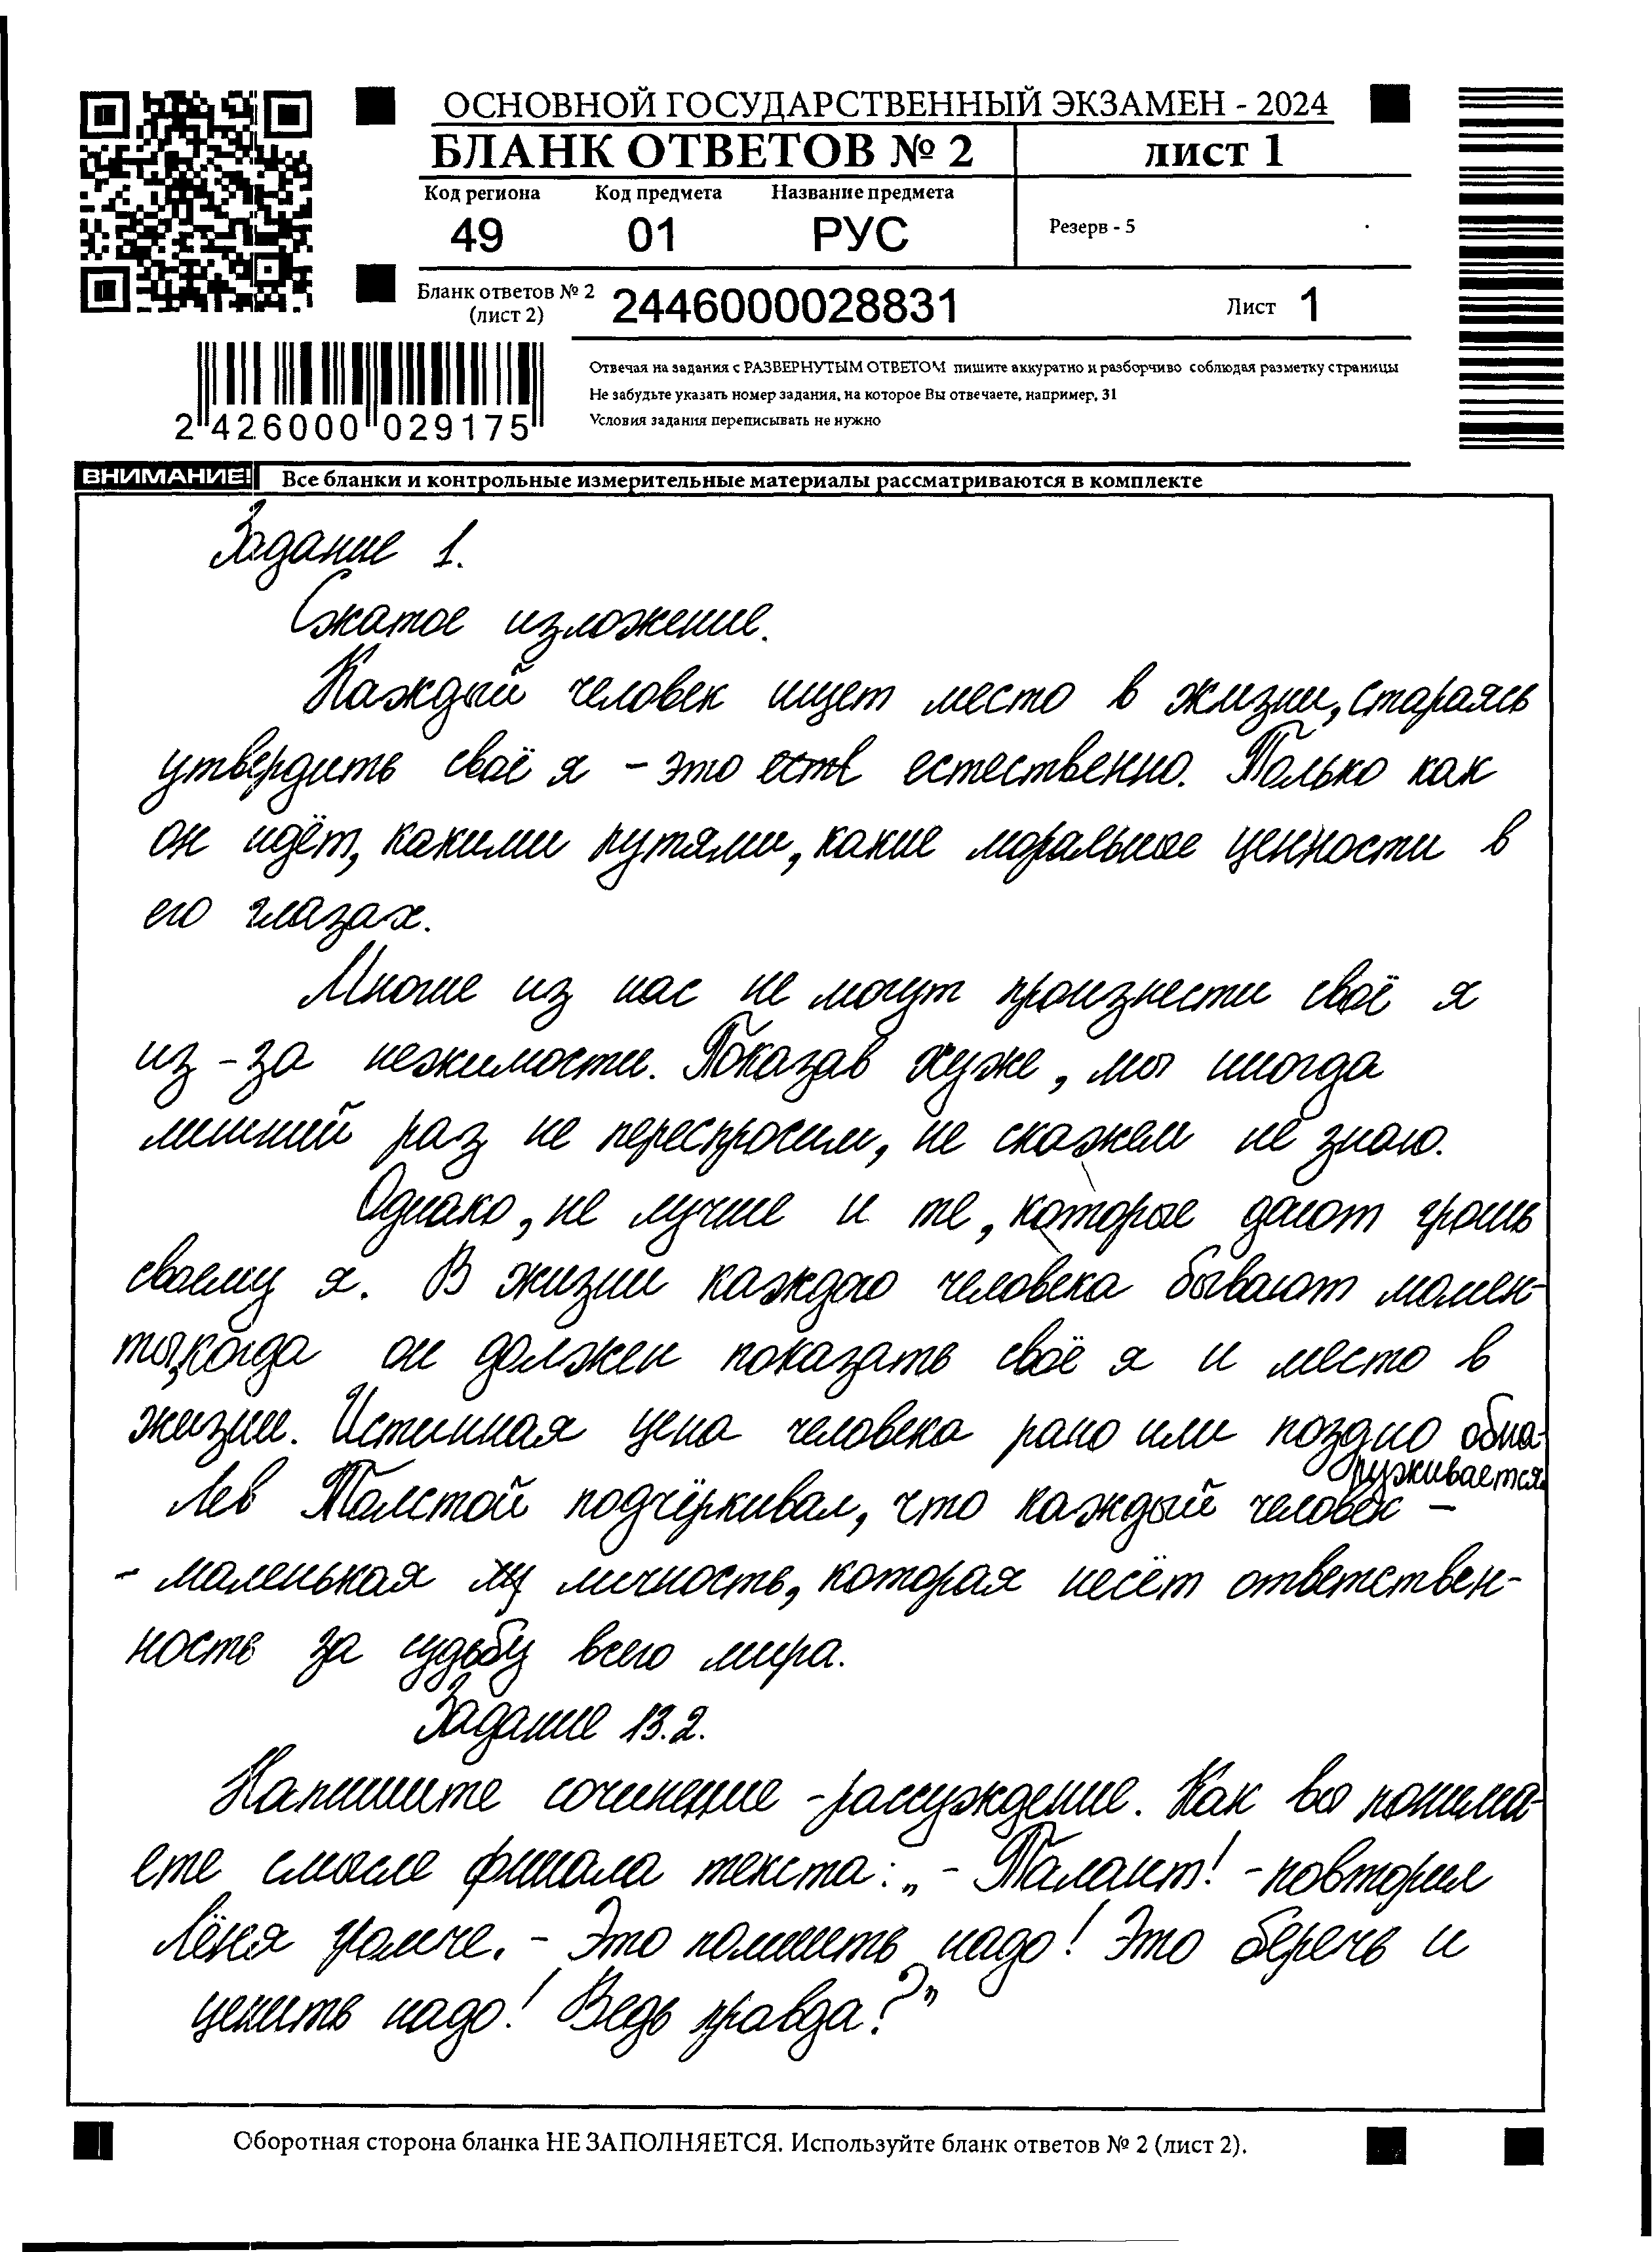 ОСНОВНОЙ ГОСУДАРСТВЕННЫЙ ЭКЗАМЕН - 2024
БЛАНК ОТВЕТОВ № 2
ЛИСТ 1
Код региона Код предмета Название предмета
49 01 РУС
Резерв - 5
Бланк ответов № 2
(лист 2)
2446000028831
Лист 1
2 426000 029175
Отвечая на задания с РАЗВЕРНУТЫМ ОТВЕТОМ пишите аккуратно и разборчиво соблюдая разметку страницы
Не забудьте указать номер задания, на которое Вы отвечаете, например, 31
Условия задания переписывать не нужно
ВНИМАНИЕ! Все бланки и контрольные измерительные материалы рассматриваются в комплекте
Задание 1.
Сжатое изложение.
Каждый человек ищет место в жизни, стараясь
утвердить своё я - это естественно. Только как
он идёт, какими путями, какие моральные ценности в
его глазах.
Многие из нас не могут произнести своё я
из-за нежимости. Показав хуже, мы иногда
лишний раз не переспросим, не скажем не знаю.
Однако, не лучше и те, которые дают грошь
своему я. В жизни каждого человека бывают момен-
ты, когда он должен показать своё я и место в
жизни. Истинная цена человека рано или поздно обна-
руживается.
Лев Толстой подчёркивал, что каждый человек -
- маленькая личность, которая несёт ответствен-
ность за судьбу всего мира.
Задание 13.2.
Напишите сочинение -рассуждение. Как вы понима-
ете смысле финала текста: „- Талант! - повторил
Лёня громче. - Это помнить надо! Это беречь и
ценить надо! Ведь правда?"
Оборотная сторона бланка НЕ ЗАПОЛНЯЕТСЯ. Используйте бланк ответов № 2 (лист 2).